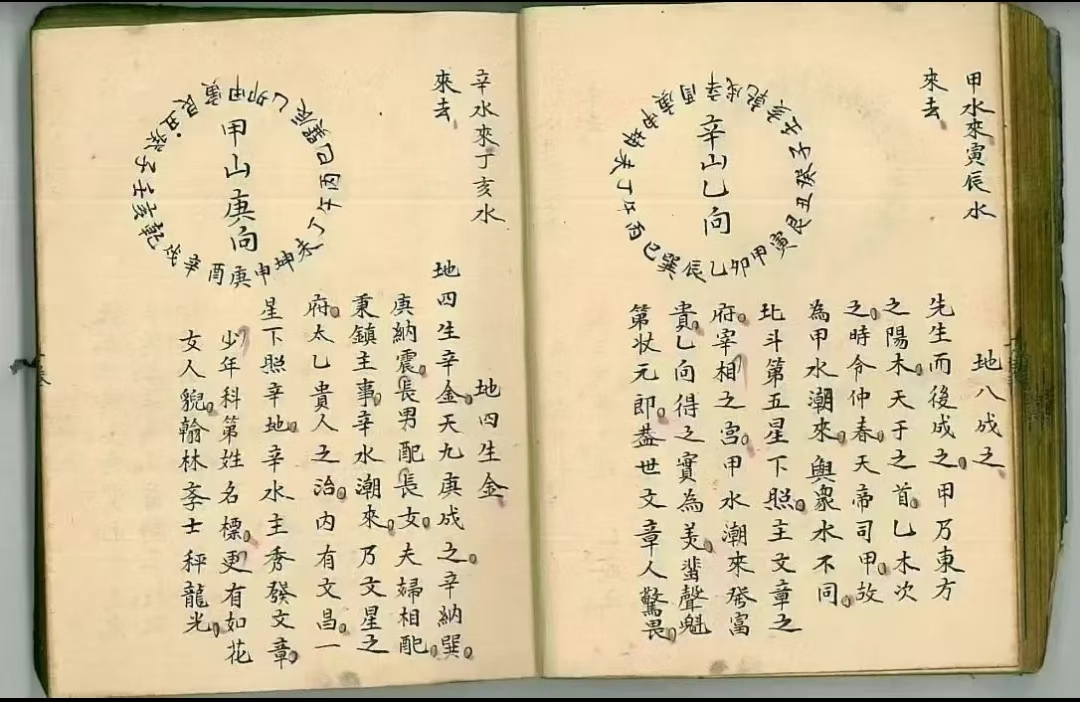 甲水來寅辰水
來去
庚酉辛戌乾亥壬子癸丑艮寅甲卯乙辰巽巳丙午丁未坤申
辛山乙向
地八成之
先生而後成之。甲乃東方
之陽木。天于之首。乙木次
之時令仲春。天帝司甲。故
為甲水潮來。與衆水不同。
北斗第五星下照。主文章之
府。宰相之宮。甲水潮來發富
貴。乙向得之實為美。蜚聲魁
第狀元郎。蓋世文章人驚畏。
辛水來丁亥水
來去
甲卯乙辰巽巳丙午丁未坤申庚酉辛戌乾亥壬子癸丑艮寅
甲山庚向
地四生金
地四生辛金。天九庚成之。辛納巽。
庚納震。長男配長女。夫婦相配。
秉鎮主事。辛水潮來。乃文星之
府。太乙貴人之治。内有文昌。一
星下照辛地。辛水主秀發文章。
少年科第姓名標。更有如花
女人貌。翰林斈士秤龍光。